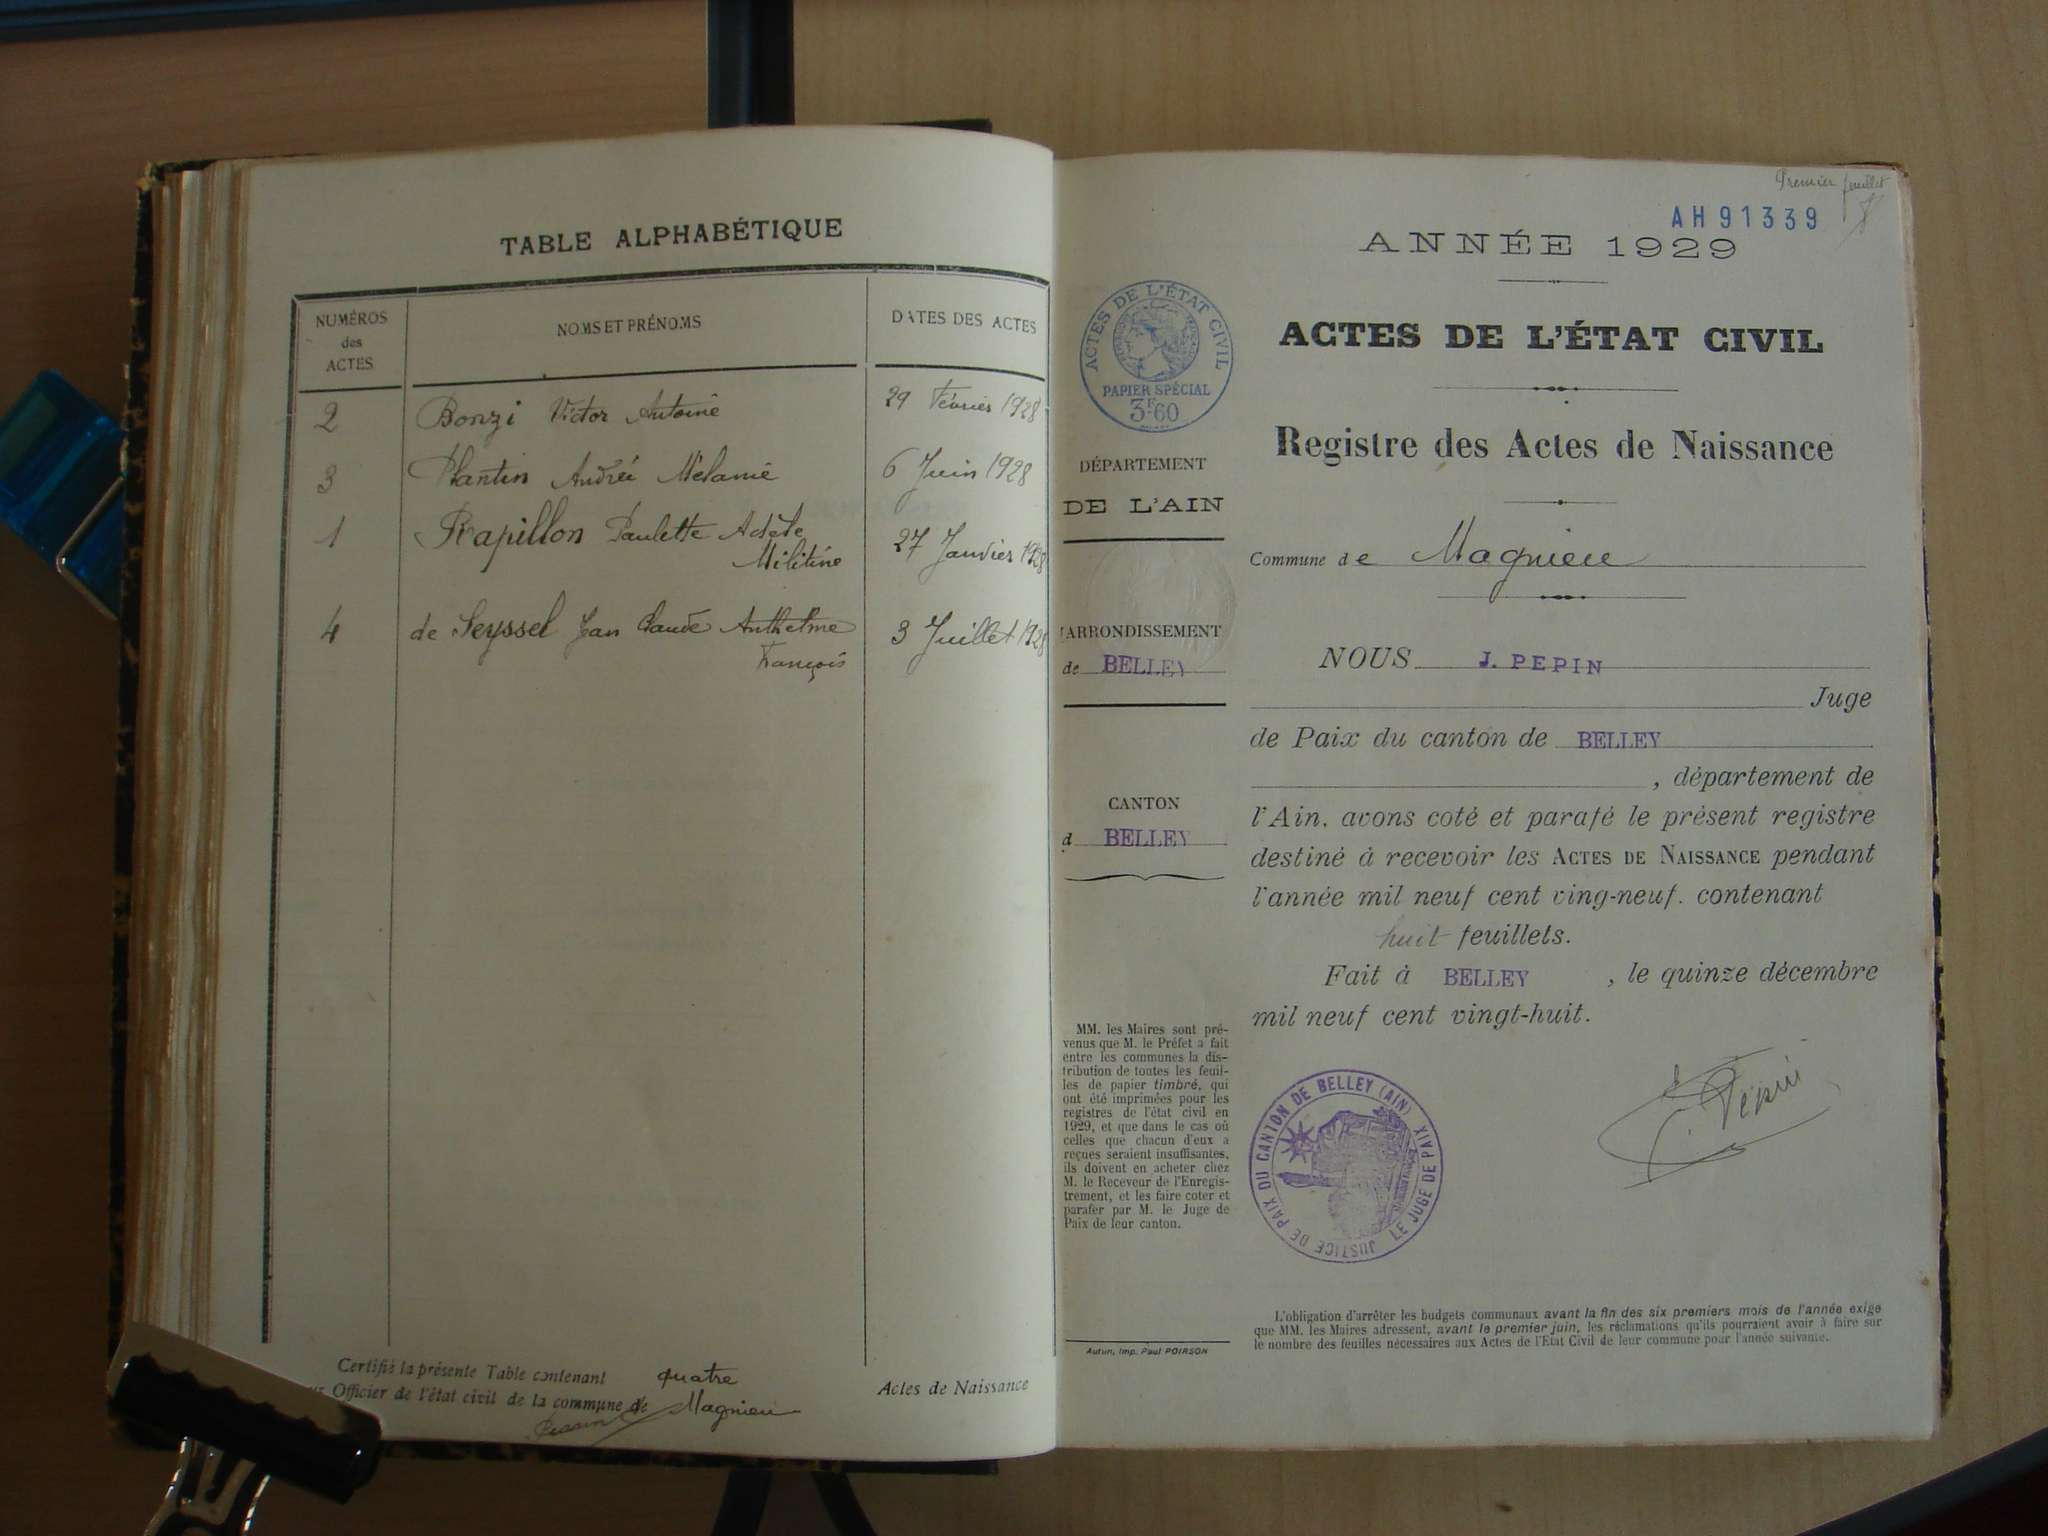 TABLE ALPHABÉTIQUE
NUMÉROS des ACTES
NOMS ET PRÉNOMS
DATES DES ACTES
2 Bonzi Victor Antoine 29 Février 1928
3 Plantin Andrée Mélanie 6 Juin 1928
1 Rapillon Paulette Adèle 27 Janvier 1928
Militine
4 de Seyssel Jean Claude Anthelme 3 Juillet 1928
François
Certifié la présente Table contenant quatre Actes de Naissance
Officier de l'état civil de la commune de Magnieu
Premier feuillet
AH 91339
ANNÉE 1929
ACTES DE L'ÉTAT CIVIL
PAPIER SPÉCIAL
3F60
ACTES DE L'ÉTAT CIVIL
Registre des Actes de Naissance
DÉPARTEMENT
DE L'AIN
Commune de Magnieu
ARRONDISSEMENT
de BELLEY
CANTON
d BELLEY
NOUS J. PEPIN
Juge
de Paix du canton de BELLEY
, département de
l'Ain, avons coté et parafé le présent registre
destiné à recevoir les ACTES DE NAISSANCE pendant
l'année mil neuf cent ving-neuf. contenant
huit feuillets.
Fait à BELLEY , le quinze décembre
mil neuf cent vingt-huit.
Pépin
JUSTICE DE PAIX DU CANTON DE BELLEY (AIN)
LE JUGE DE PAIX
MM. les Maires sont pré-
venus que M. le Préfet a fait
entre les communes la dis-
tribution de toutes les feuil-
les de papier timbré, qui
ont été imprimées pour les
registres de l'état civil en
1929, et que dans le cas où
celles que chacun d'eux a
reçues seraient insuffisantes,
ils doivent en acheter chez
M. le Receveur de l'Enregis-
trement, et les faire coter et
parafer par M. le Juge de
Paix de leur canton.
Autun, Imp. Paul POIRSON
L'obligation d'arrêter les budgets communaux avant la fin des six premiers mois de l'année exige
que MM. les Maires adressent, avant le premier juin, les réclamations qu'ils pourraient avoir à faire sur
le nombre des feuilles nécessaires aux Actes de l'Etat Civil de leur commune pour l'année suivante.